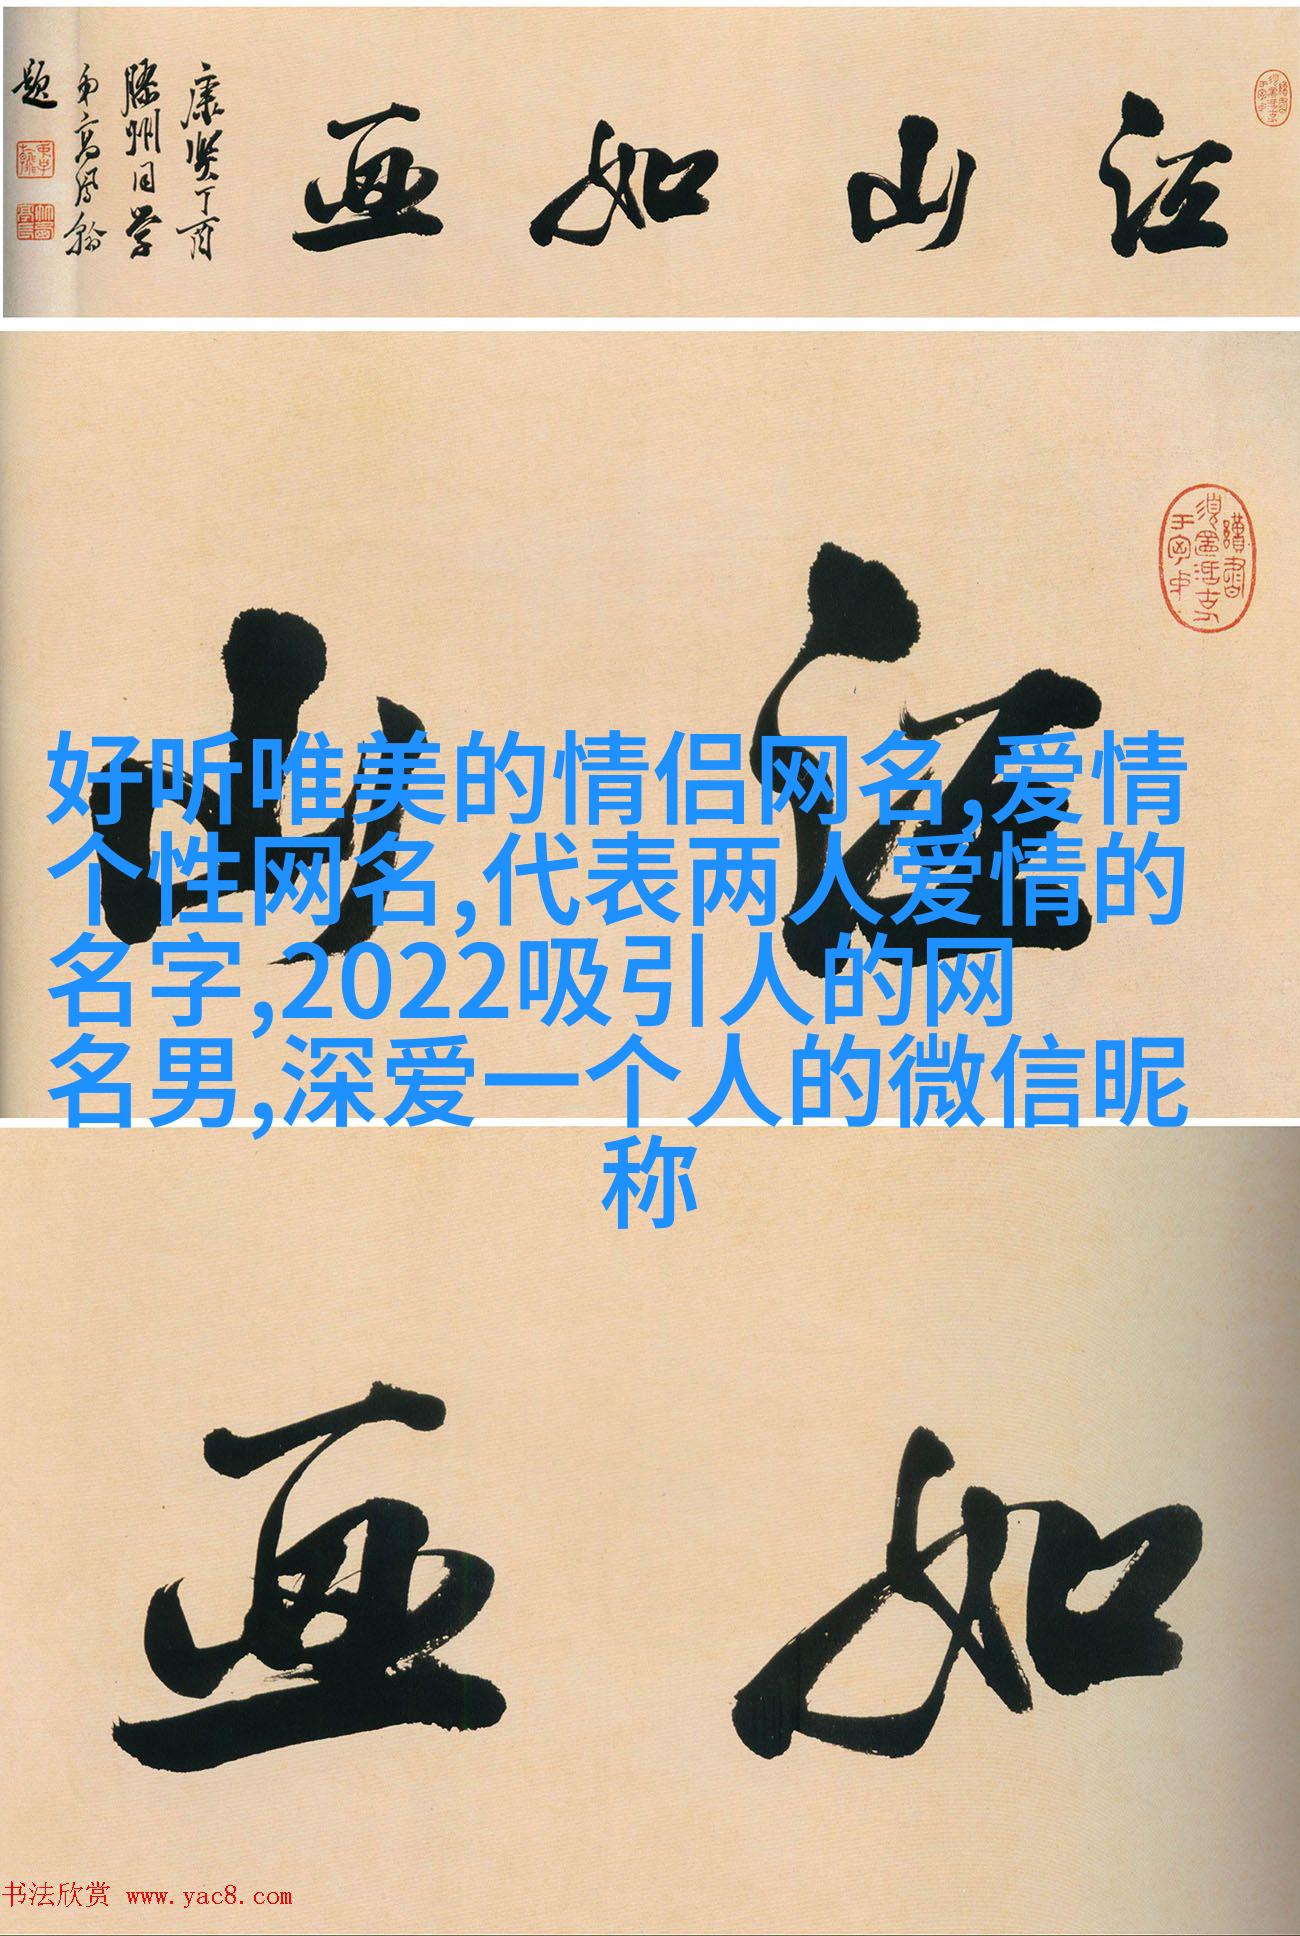 江山如画
康熙丁酉
滕州同学
弟高凤翰
题
江山
好听唯美的情侣网名,爱情
个性网名,代表两人爱情的
名字,2022吸引人的网
名男,深爱一个人的微信昵
称
如画
书法欣赏 www.yac8.com